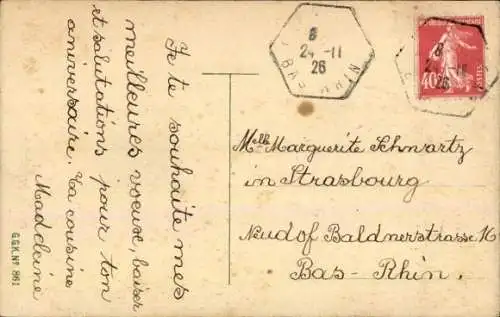 Je te souhaite mes
meilleures voeux, baiser
et salutations pour ton
aniversaire. Ta cousine
Maddeine
G.G.K. Nº 861
8
24-11
26
BAS RHIN
8
24-11
26
40
POSTES
Melle Marguerite Schwartz
in Strasbourg
Neudof Baldnerstrasse
Bas-Rhin.